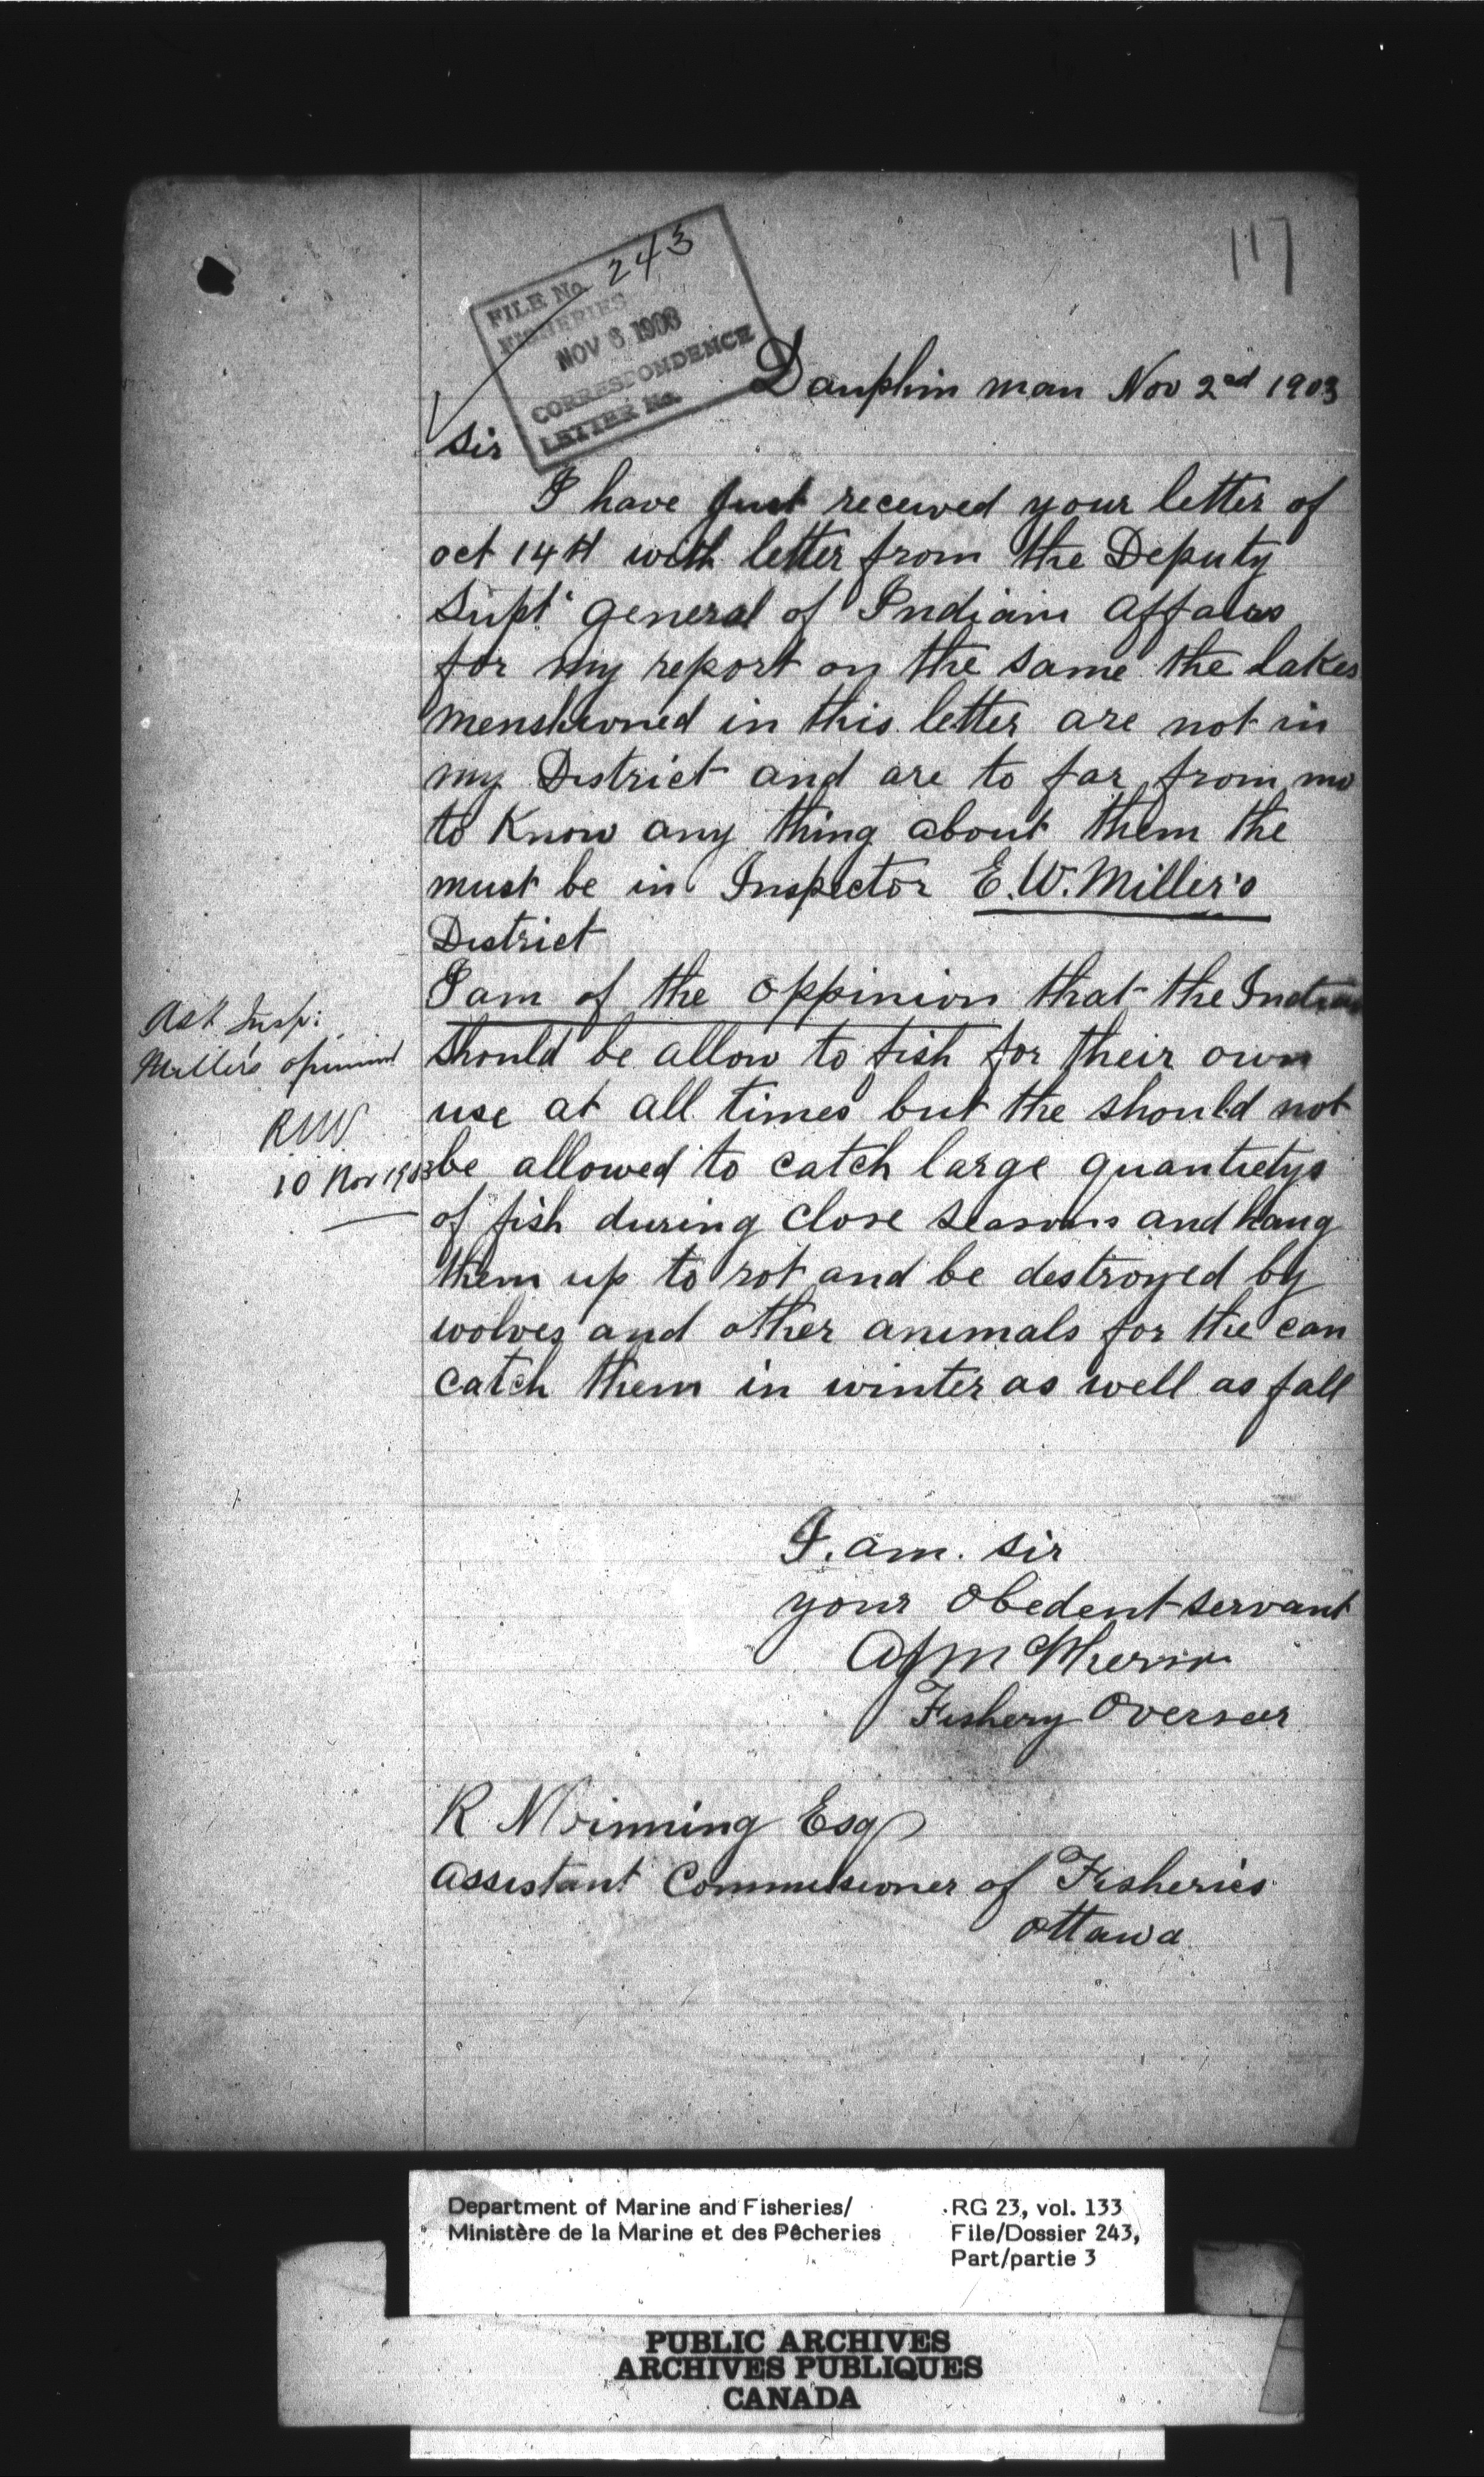 117
FILE No. 243
FISHERIES
NOV 6 1903
CORRESPONDENCE
LETTER No.
Dauphin man Nov 2nd 1903
Sir
I have just received your letter of
oct 14th with letter from the Deputy
Supt General of Indian affairs
for my report on the same the Lakes
menshioned in this letter are not in
my District and are to far from me
to Know any thing about them the
must be in Inspector E.W. Miller's
District
I am of the oppinion that the Indian
should be allow to fish for their own
use at all times but the should not
be allowed to catch large quantietys
of fish during close seasons and hang
them up to rot and be destroyed by
wolves and other animals for the can
catch them in winter as well as fall
Ask Insp:
Miller's opinion
RNV
10 Nov 1903
I. am. sir
your obedent servant
Fishery Overseer
R N Vinning Esq
assistant Commisioner of Fisheries
ottawa
Department of Marine and Fisheries/
Ministère de la Marine et des Pêcheries
RG 23, vol. 133
File/Dossier 243,
Part/partie 3
PUBLIC ARCHIVES
ARCHIVES PUBLIQUES
CANADA